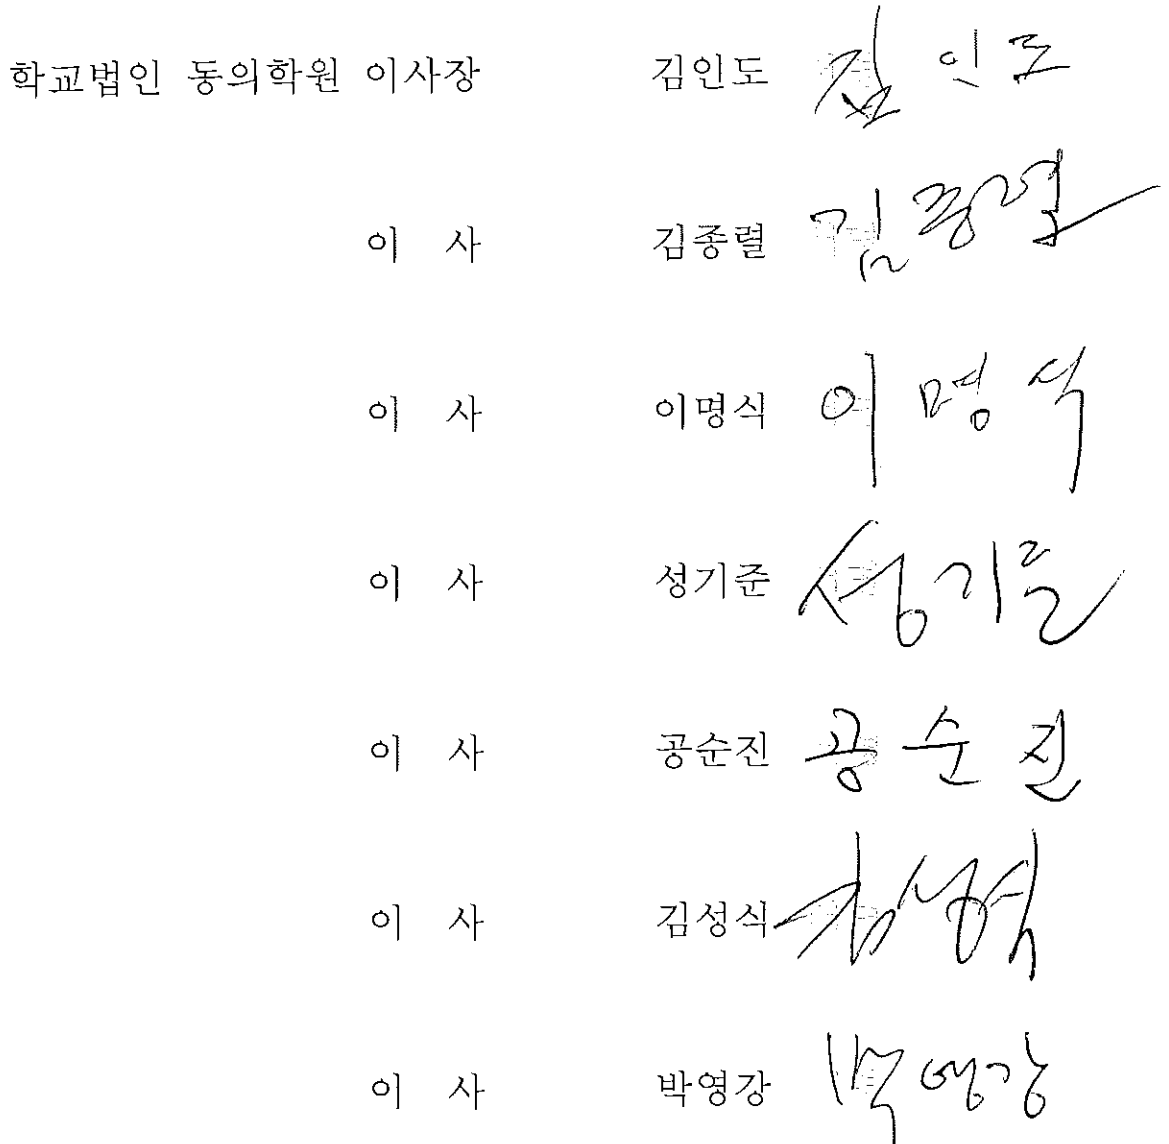 학교법인 동의학원 이사장 김인도 김인도
이 사 김종렬 김종렬
이 사 이명식 이명식
이 사 성기준 성기준
이 사 공순진 공순진
이 사 김성식 김성식
이 사 박영강 박영강